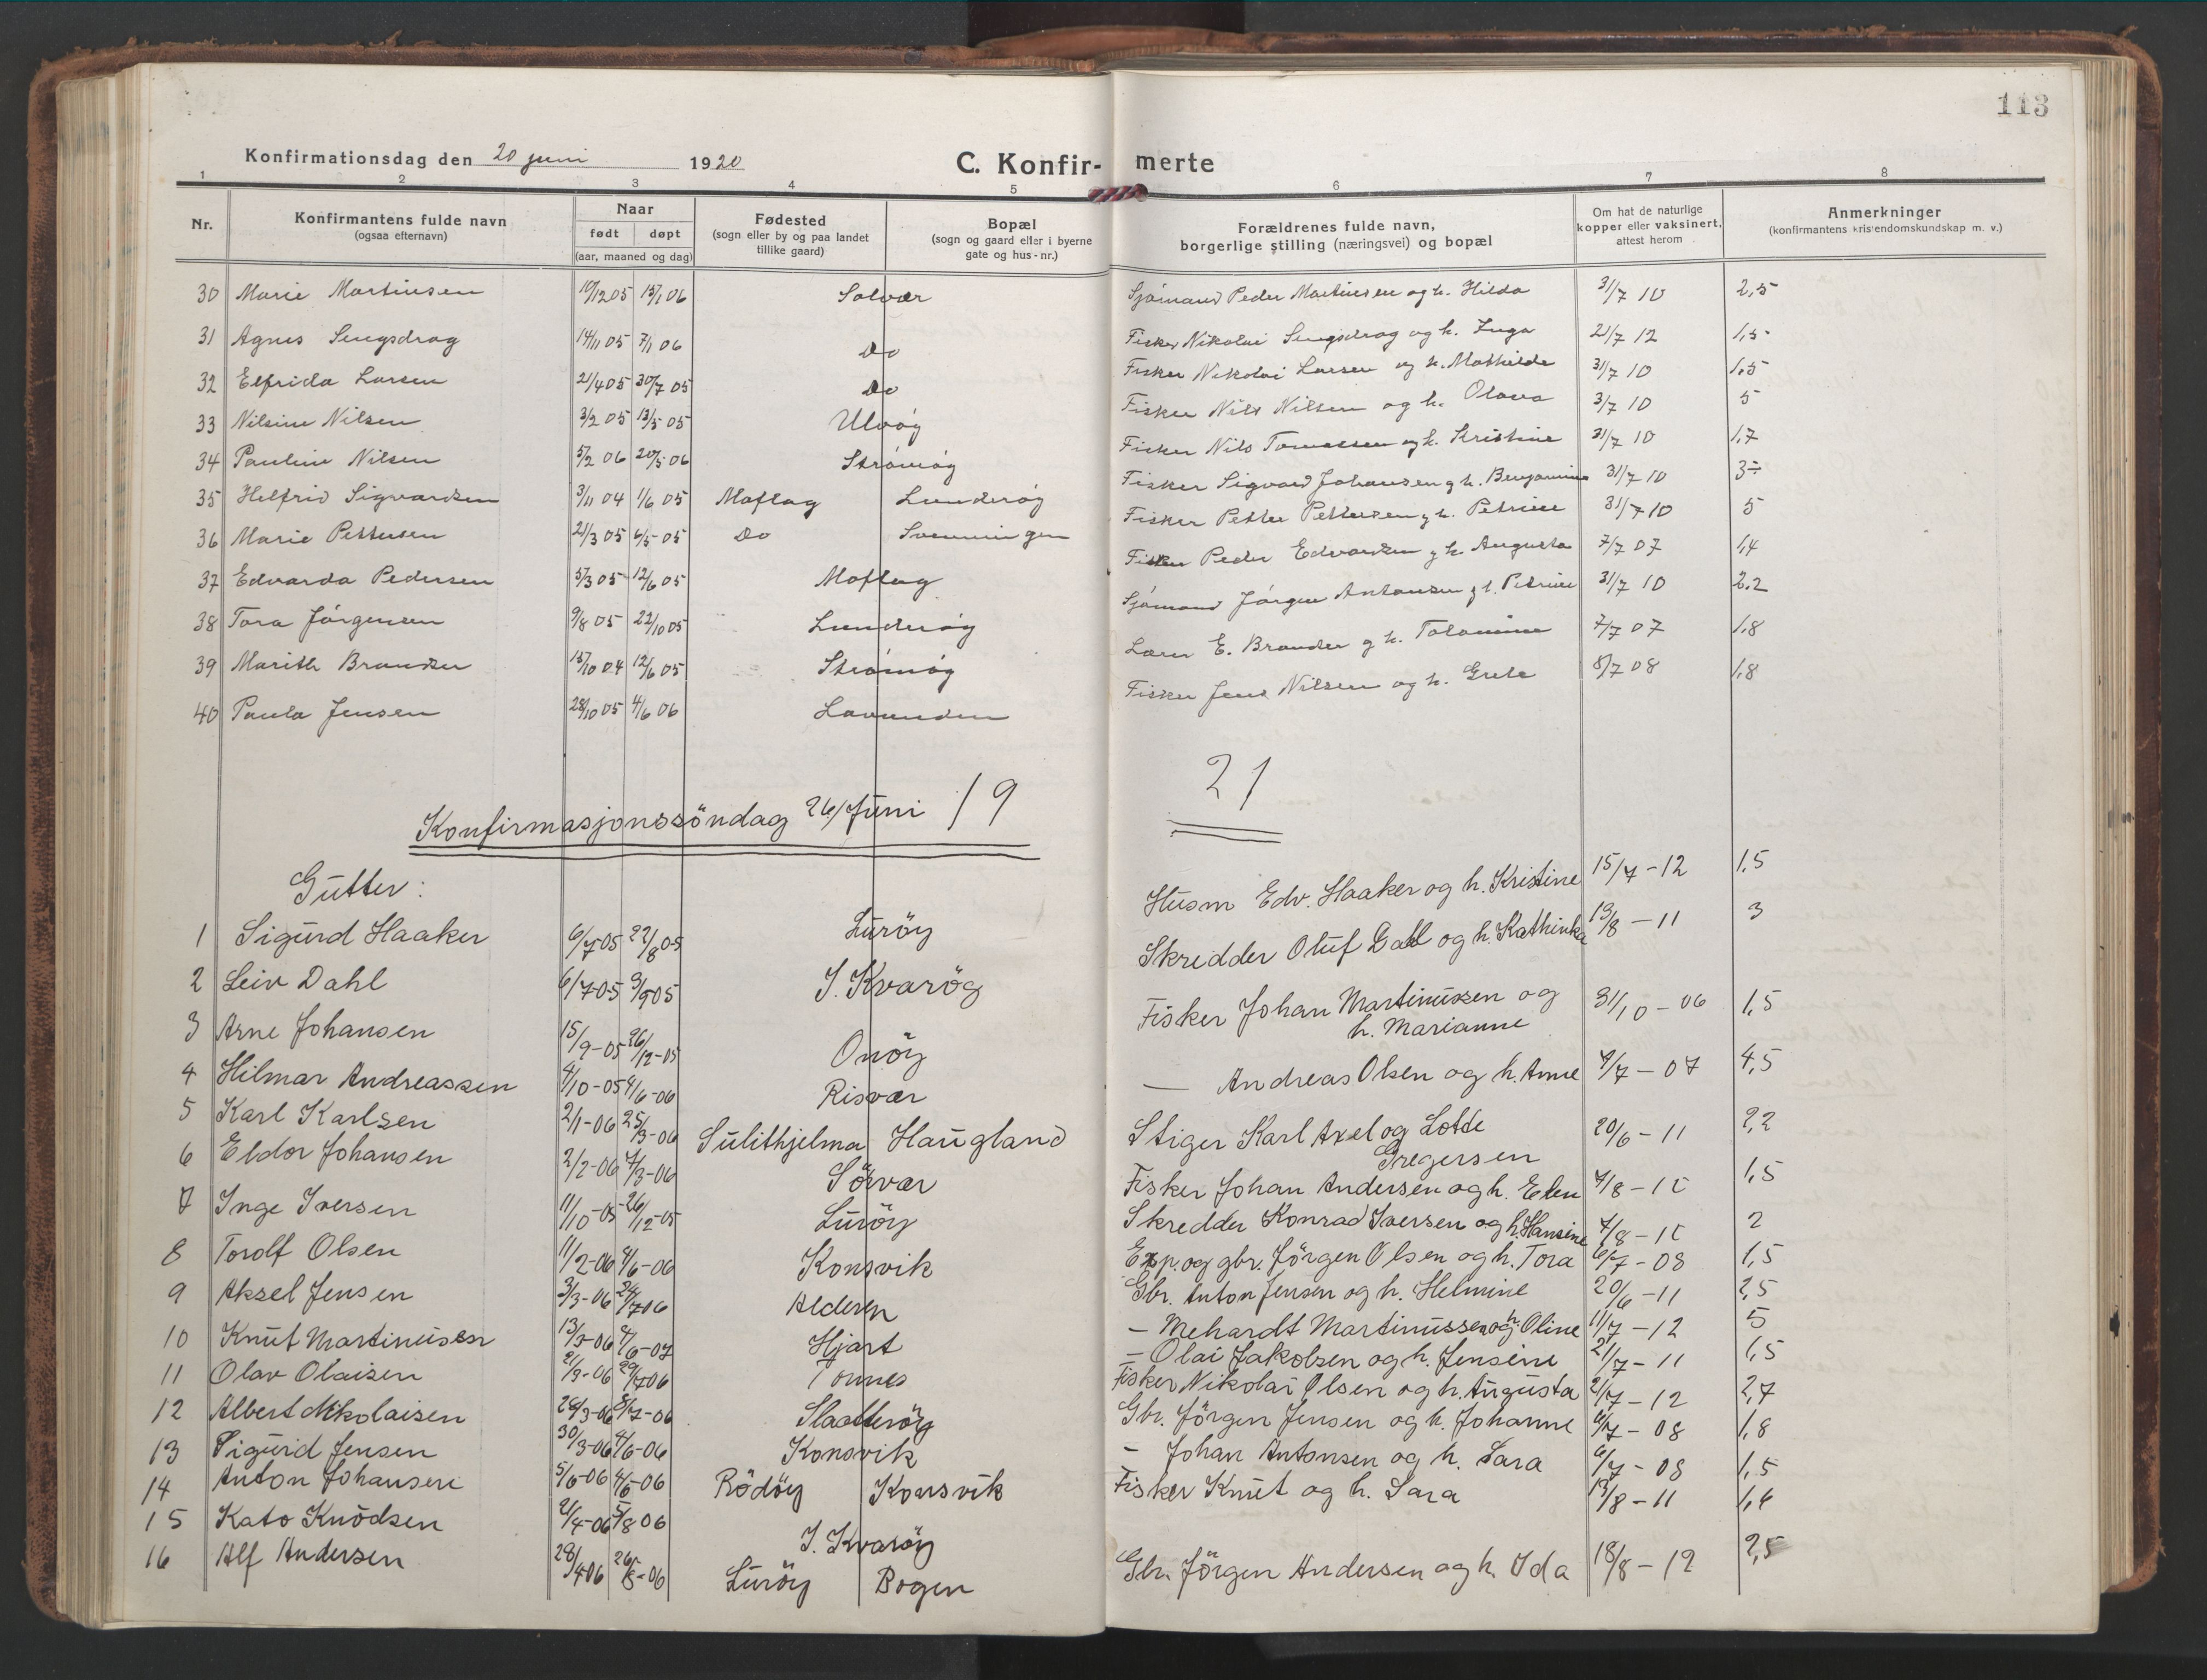 113
Konfirmationsdag den 20 juni 1920
C. Konfirmerte
1 2 3 4 5 6 7 8
Nr. Konfirmantens fulde navn (ogsaa efternavn) Naar født døpt (aar, maaned og dag) Fødested (sogn eller by og paa landet tillike gaard) Bopæl (sogn og gaard eller i byerne gate og hus-nr.) Forældrenes fulde navn, borgerlige stilling (næringsvei) og bopæl Om hat de naturlige kopper eller vaksinert, attest herom Anmerkninger (konfirmantens kristendomskundskap m. v.)
30 Marie Martinsen 19/12 05 15/1 06 Solvær Sjömand Peder Martinsen og h. Hilda 31/7 10 2,5
31 Agnes Sengsdrag 14/11 05 7/1 06 Do Fisker Nikolai Sengsdrag og h. Inga 21/7 12 1,5
32 Elfrida Larsen 21/4 05 30/7 05 Do Fisker Nikolai Larsen og h. Mathilde 31/7 10 1,5
33 Nilsine Nilsen 3/2 05 13/5 05 Ulvöy Fisker Nils Nilsen og h. Olava 3/7 10 5
34 Pauline Nilsen 5/2 06 20/5 06 Strömöy Fisker Nils Tomassen og h. Kristine 31/7 10 1,7
35 Helfrid Sigvardsen 3/11 04 1/6 05 Moflag Lunderöy Fisker Sigvard Johansen og h. Benjamine 31/7 10 3÷
36 Marie Pettersen 21/3 05 6/5 05 Do Svenningen Fisker Petter Pettersen og h. Petrine 31/7 10 5
37 Edvarda Pedersen 5/3 05 12/6 05 Moflag Fisker Peder Edvardsen og h. Augusta 7/7 07 1,4
38 Tora Jörgensen 9/8 05 22/10 05 Lunderöy Sjömand Jörgen Antonsen og h. Petrine 31/7 10 2,2
39 Marith Brandser 15/10 04 12/6 05 Strömöy Lærer E. Brandser og h. 7/7 07 1,8
40 Paula Jensen 28/10 05 4/6 06 Lovunden Fisker Jens Nilsen og h. Grete 8/7 08 1,8
Konfirmasjonssöndag 26/Juni 19 21
Gutter:
1 Sigurd Haaker 6/7 05 27/8 05 Luröy Husm Edv. Haaker og h. Kristine 15/7-12 1,5
2 Leiv Dahl 6/7 05 3/9 05 I. Kvaröy Skredder Oluf Dahl og h. Kathinka 13/8-11 3
3 Arne Johansen 15/9-05 26/12-05 Onöy Fisker Johan Martinussen og h. Marianne 31/10-06 1,5
4 Hilmar Andreassen 4/10-05 4/6-06 Risvær — Andreas Olsen og h. Anne 7/7-07 4,5
5 Karl Karlsen 2/1-06 25/3-06 Sulithjelma Haugland Stiger Karl Axel og Lotte Gregersen 20/6-11 2,2
6 Eldor Johansen 2/2-06 7/3-06 Sörvær Fisker Johan Andersen og h. Elen 7/8-10 1,5
7 Inge Iversen 11/10-05 26/12-05 Luröy Skredder Konrad Iversen og h. Hansine 7/8-10 2
8 Torolf Olsen 11/2-06 4/6-06 Konsvik Exp. og gbr. Jörgen Olsen og h. Tora 6/7-08 1,5
9 Aksel Jensen 3/3-06 29/7 06 Alderen Gbr. Anton Jensen og h. Helmine 20/6-11 2,5
10 Knut Martinusen 13/3-06 4/6-07 Hjart — Mehardt Martinussen og h. Oline 11/7-12 5
11 Olav Olaisen 21/3-06 29/7 06 Tonnes — Olai Jakobsen og h. Jensine 21/7-11 1,5
12 Albert Nikolaisen 28/3-06 8/7-06 Slaatteröy Fisker Nikolai Olsen og h. Augusta 21/7-12 2,7
13 Sigurd Jensen 30/3-06 4/6-06 Konsvik Gbr. Jörgen Jensen og h. Johanne 6/7-08 1,8
14 Anton Johansen 5/6-06 4/6-06 Rödöy Konsvik — Johan Antonsen og h. Sara 6/7-08 1,5
15 Kato Knudsen 2/4-06 5/8 06 I. Kvaröy Fisker Knut og h. Sara 13/8-11 1,6
16 Alf Andersen 28/4 06 26/8-06 Luröy Bogen Gbr. Jörgen Andersen og h. Ida 18/8-12 2,5